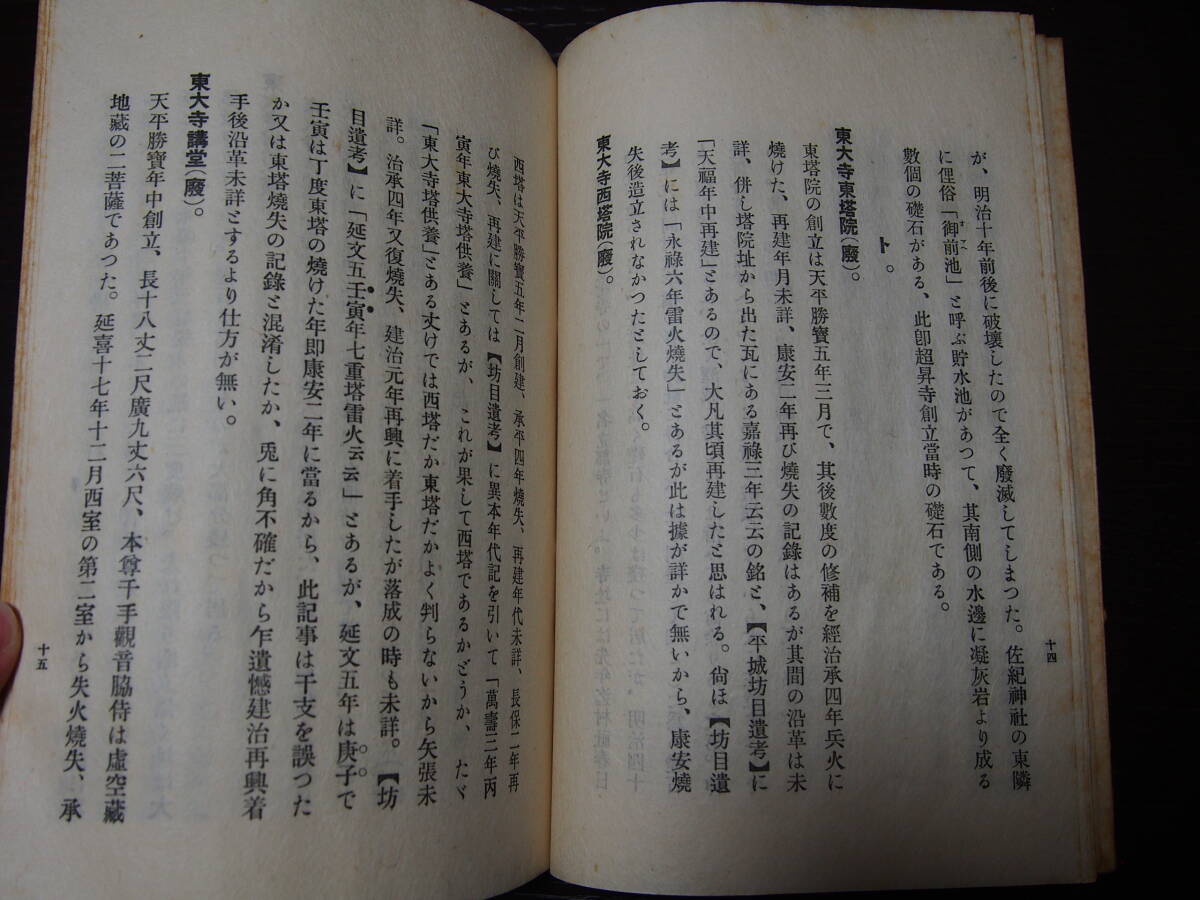 が、明治十年前後に破壞したので全く廢滅してしまつた。佐紀神社の東隣
に俚俗「御前池」と呼ぶ貯水池があつて、其南側の水邊に凝灰岩より成る
數個の礎石がある、此卽超昇寺創立當時の礎石である。
ト。
東大寺東塔院(廢)。
東塔院の創立は天平勝寶五年三月で、其後數度の修補を經治承四年兵火に
燒けた、再建年月未詳、康安二年再び燒失の記錄はあるが其間の沿革は未
詳、併し塔院址から出た瓦にある嘉祿三年云云の銘と、【平城坊目遺考】に
「天福年中再建」とあるので、大凡其頃再建したと思はれる。尙ほ【坊目遺
考】には「永祿六年雷火燒失」とあるが此は據が詳かで無いから、康安燒
失後造立されなかつたとしておく。
東大寺西塔院(廢)。
十四
西塔は天平勝寶五年二月創建、承平四年燒失、再建年代未詳、長保二年再
び燒失、再建に關しては【坊目遺考】に異本年代記を引いて「萬壽三年丙
寅年東大寺塔供養」とあるが、これが果して西塔であるかどうか、たゞ
「東大寺塔供養」とある丈けでは西塔だか東塔だかよく判らないから矢張未
詳。治承四年又復燒失、建治元年再興に着手したが落成の時も未詳。【坊
目遺考】に「延文五壬寅年七重塔雷火云云」とあるが、延文五年は庚子で
壬寅は丁度東塔の燒けた年卽康安二年に當るから、此記事は干支を誤つた
か又は東塔燒失の記錄と混淆したか、兎に角不確だから乍遺憾建治再興着
手後沿革未詳とするより仕方が無い。
東大寺講堂(廢)。
天平勝寶年中創立、長十八丈二尺廣九丈六尺、本尊千手觀音脇侍は虛空藏
地藏の二菩薩であつた。延喜十七年十二月西室の第二室から失火燒失、承
十五